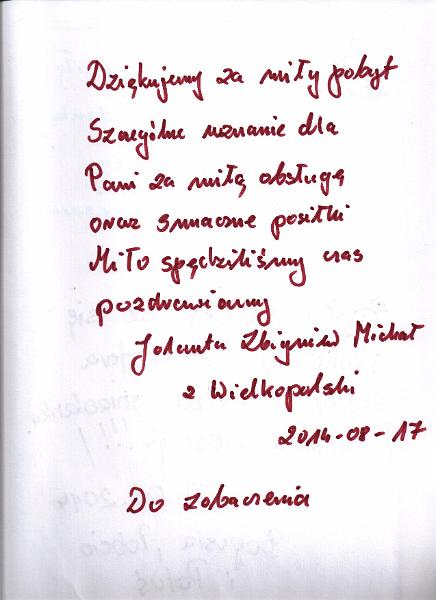 Dziękujemy za miły pobyt
Szczególne uznanie dla
Pani za miłą obsługę
oraz smaczne posiłki
Miło spędziliśmy czas
pozdrawiamy
Jolanta Zbigniew Michał
z Wielkopolski
2014-08-17
Do zobaczenia